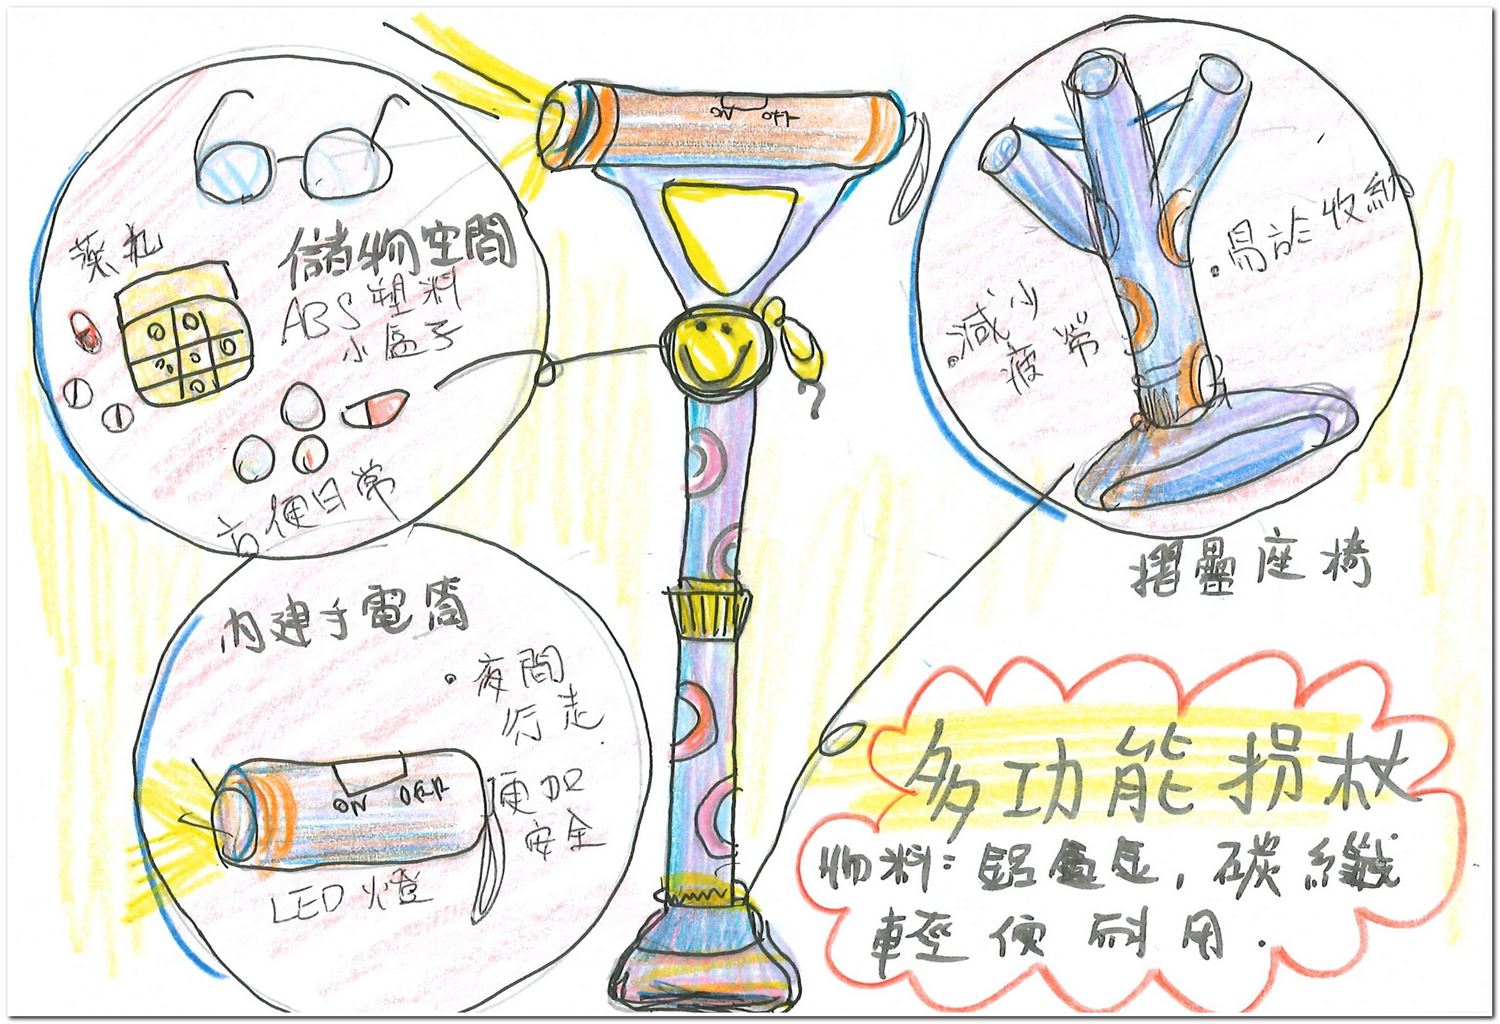 ON OFF
藥丸
儲物空間
ABS塑料
小盒子
方便日常
易於收納
減少
疲勞
摺疊座椅
內建手電筒
夜間
行走
更加
安全
ON OFF
LED燈
?
多功能拐杖
物料：鋁合金，碳纖
輕便耐用.